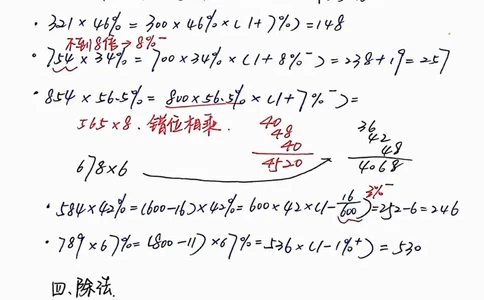 · 321×46% = 300×46%×(1+7%)=148
不到8倍→8%⁻
· 754×34% = 700×34%×(1+8%⁻)=238+19=257
· 854×56.5%= 800×56.5%×(1+7%⁻)=
565×8.错位相乘.
40
48
40
4520
678×6
36
42
48
4068
3%⁻
· 584×42%=(600-16)×42%=600×42×(1-16/600)=252-6=246
· 789×67%=(800-11)×67%=536×(1-1%⁺)=530
四、除法.